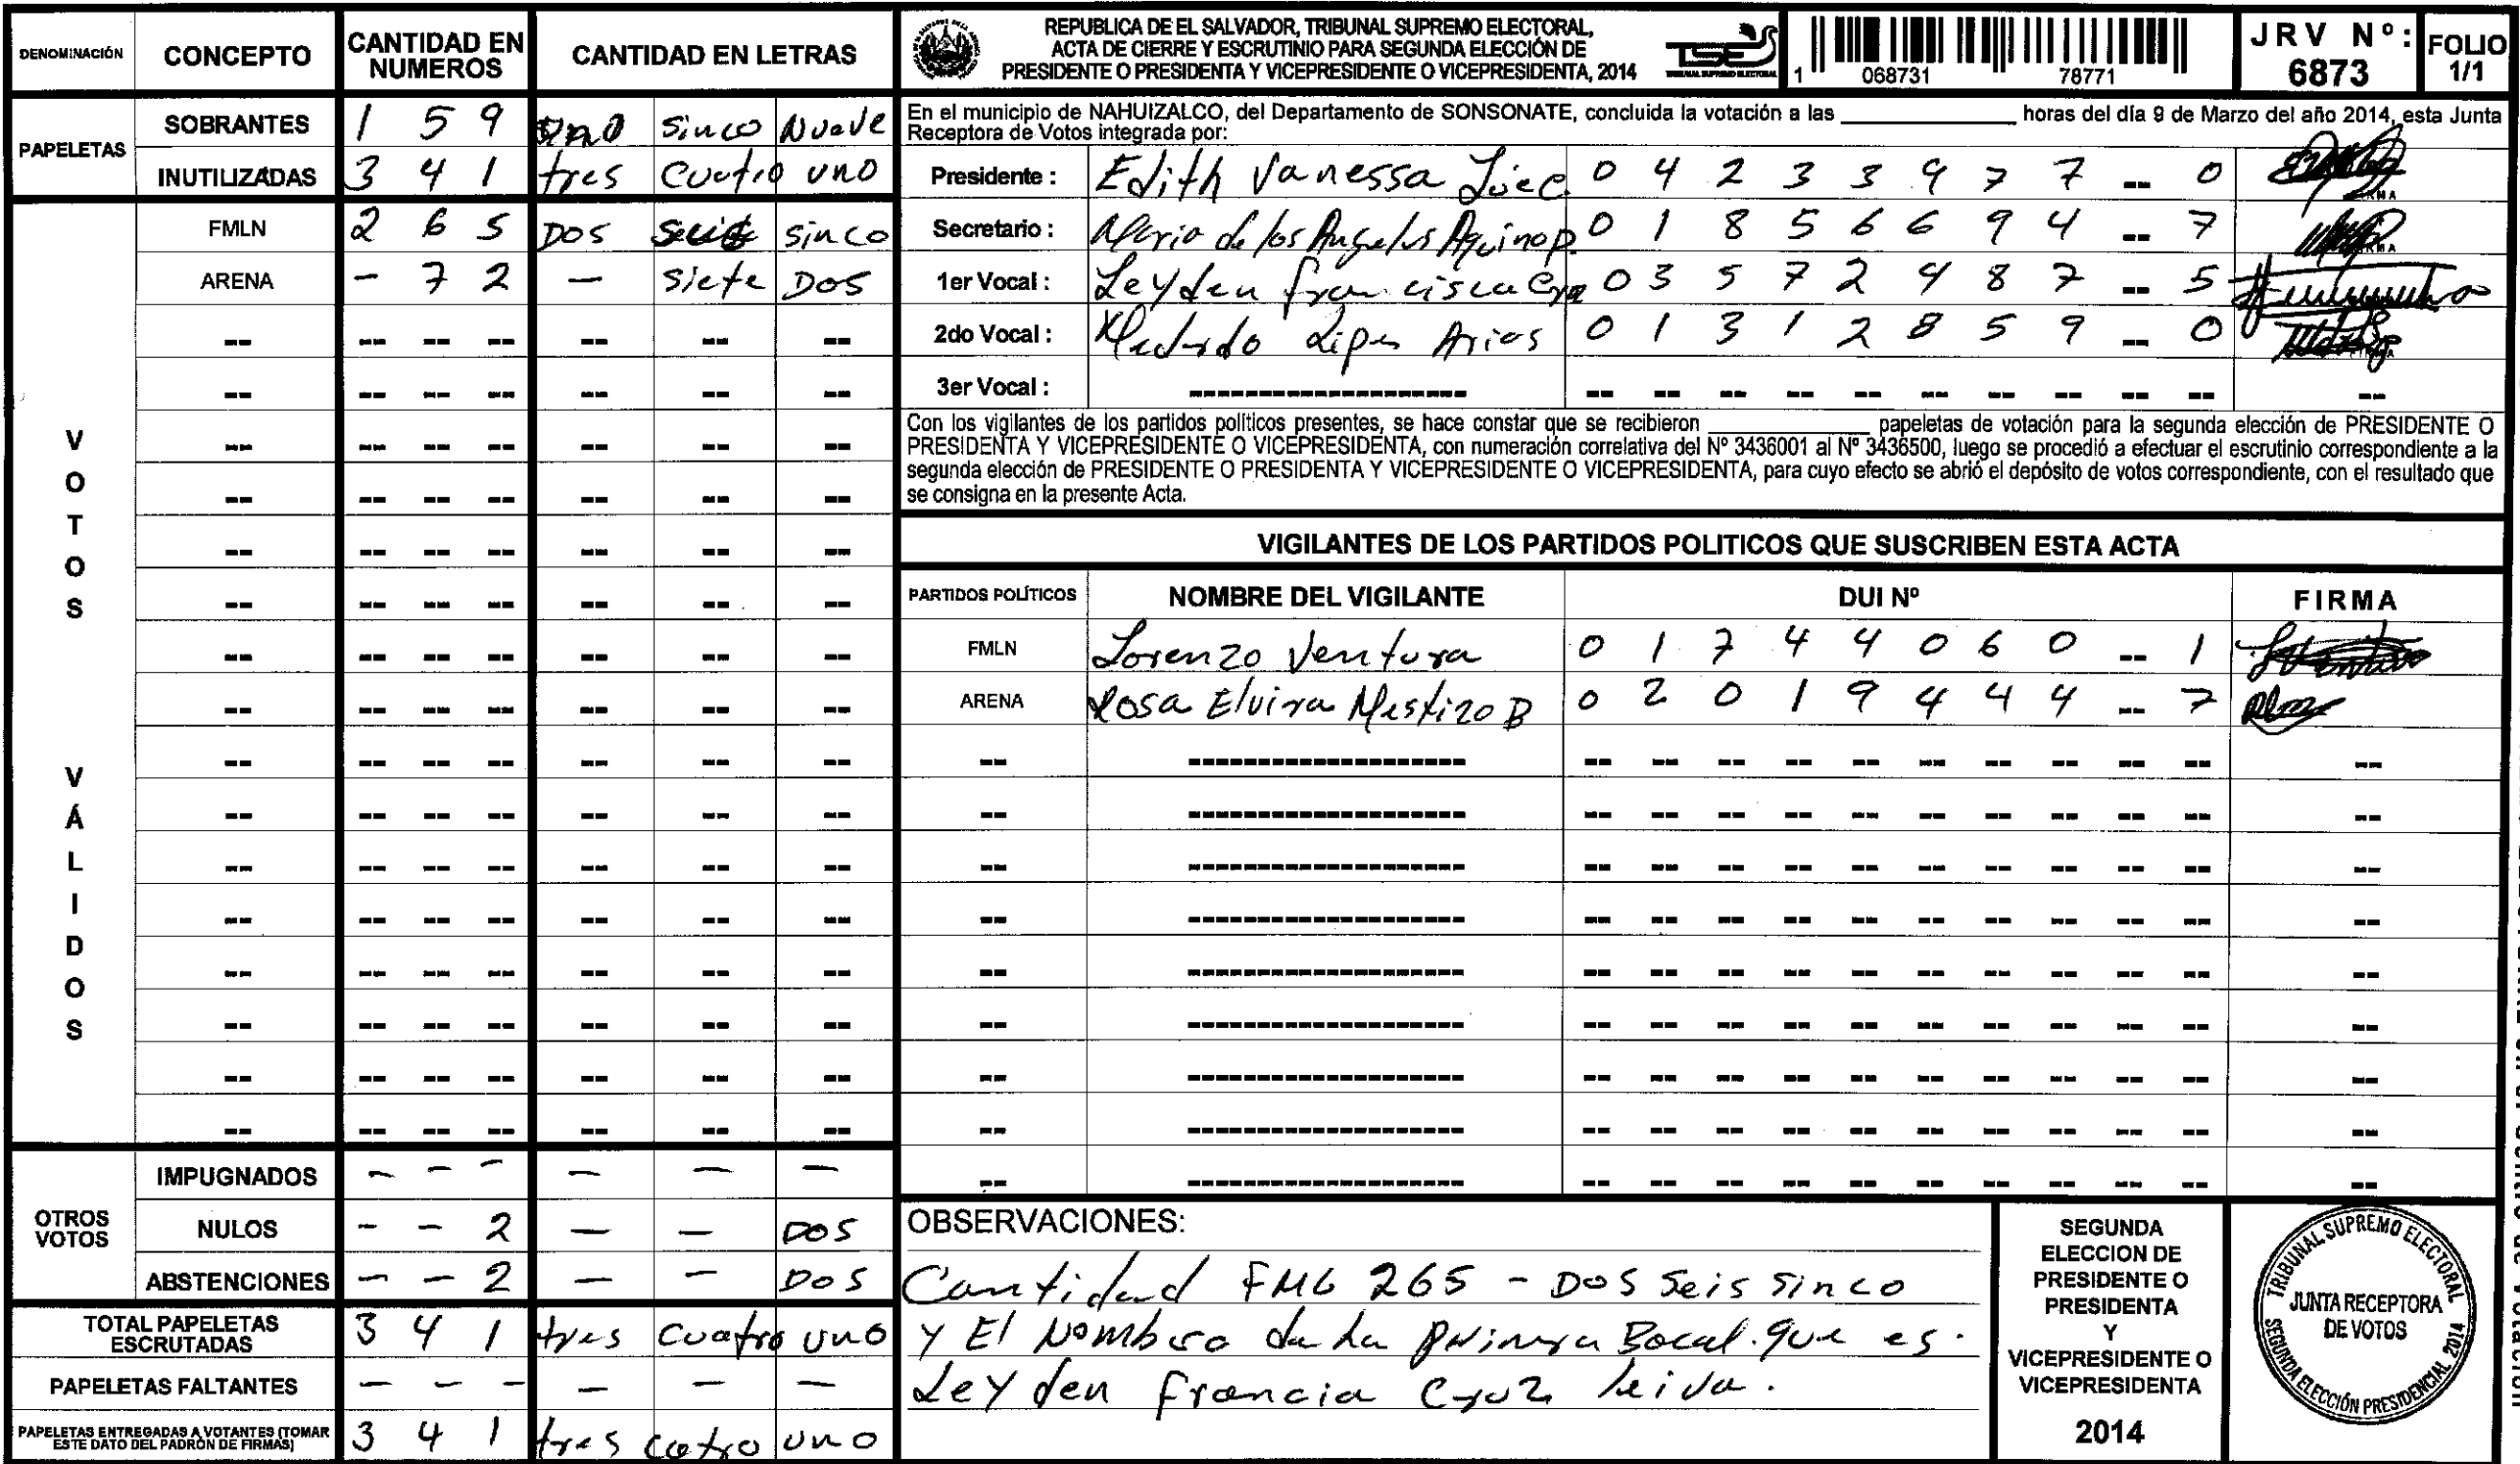 DENOMINACIÓN CONCEPTO CANTIDAD EN NUMEROS CANTIDAD EN LETRAS
PAPELETAS
SOBRANTES 1 5 9 uno sinco Nueve
INUTILIZADAS 3 4 1 tres cuatro uno
VOTOS VÁLIDOS
FMLN 2 6 5 DOS seis sinco
ARENA - 7 2 - siete DOS
OTROS VOTOS
IMPUGNADOS - - - - - -
NULOS - - 2 - - DOS
ABSTENCIONES - - 2 - - DOS
TOTAL PAPELETAS ESCRUTADAS 3 4 1 tres cuatro uno
PAPELETAS FALTANTES - - - - - -
PAPELETAS ENTREGADAS A VOTANTES (TOMAR ESTE DATO DEL PADRÓN DE FIRMAS) 3 4 1 tres catro uno
REPUBLICA DE EL SALVADOR, TRIBUNAL SUPREMO ELECTORAL,
ACTA DE CIERRE Y ESCRUTINIO PARA SEGUNDA ELECCIÓN DE
PRESIDENTE O PRESIDENTA Y VICEPRESIDENTE O VICEPRESIDENTA, 2014
TSE
TRIBUNAL SUPREMO ELECTORAL
1 068731 78771
JRV Nº: 6873
FOLIO 1/1
En el municipio de NAHUIZALCO, del Departamento de SONSONATE, concluida la votación a las ____ horas del día 9 de Marzo del año 2014, esta Junta
Receptora de Votos integrada por:
Presidente : Edith Vanessa 0 4 2 3 3 9 7 7 -- 0
Secretario : Maria de los Angeles Aquino P. 0 1 8 5 6 6 9 4 -- 7
1er Vocal : Leyden francisca 0 3 5 7 2 4 8 7 -- 5
2do Vocal : Lipes Arias 0 1 3 1 2 8 5 9 -- 0
3er Vocal :
Con los vigilantes de los partidos políticos presentes, se hace constar que se recibieron ____ papeletas de votación para la segunda elección de PRESIDENTE O
PRESIDENTA Y VICEPRESIDENTE O VICEPRESIDENTA, con numeración correlativa del Nº 3436001 al Nº 3436500, luego se procedió a efectuar el escrutinio correspondiente a la
segunda elección de PRESIDENTE O PRESIDENTA Y VICEPRESIDENTE O VICEPRESIDENTA, para cuyo efecto se abrió el depósito de votos correspondiente, con el resultado que
se consigna en la presente Acta.
VIGILANTES DE LOS PARTIDOS POLITICOS QUE SUSCRIBEN ESTA ACTA
PARTIDOS POLÍTICOS NOMBRE DEL VIGILANTE DUI Nº FIRMA
FMLN Lorenzo Ventura 0 1 7 4 4 0 6 0 -- 1
ARENA Rosa Elvira Mestizo B 0 2 0 1 9 4 4 4 -- 7
OBSERVACIONES:
Cantidad FML 265 - DOS Seis sinco
y El Nombro de La Primera Bocal. que es.
Leyden francia Cruz Leiva.
SEGUNDA
ELECCION DE
PRESIDENTE O
PRESIDENTA
Y
VICEPRESIDENTE O
VICEPRESIDENTA
2014
TRIBUNAL SUPREMO ELECTORAL
JUNTA RECEPTORA
DE VOTOS
SEGUNDA ELECCIÓN PRESIDENCIAL 2014